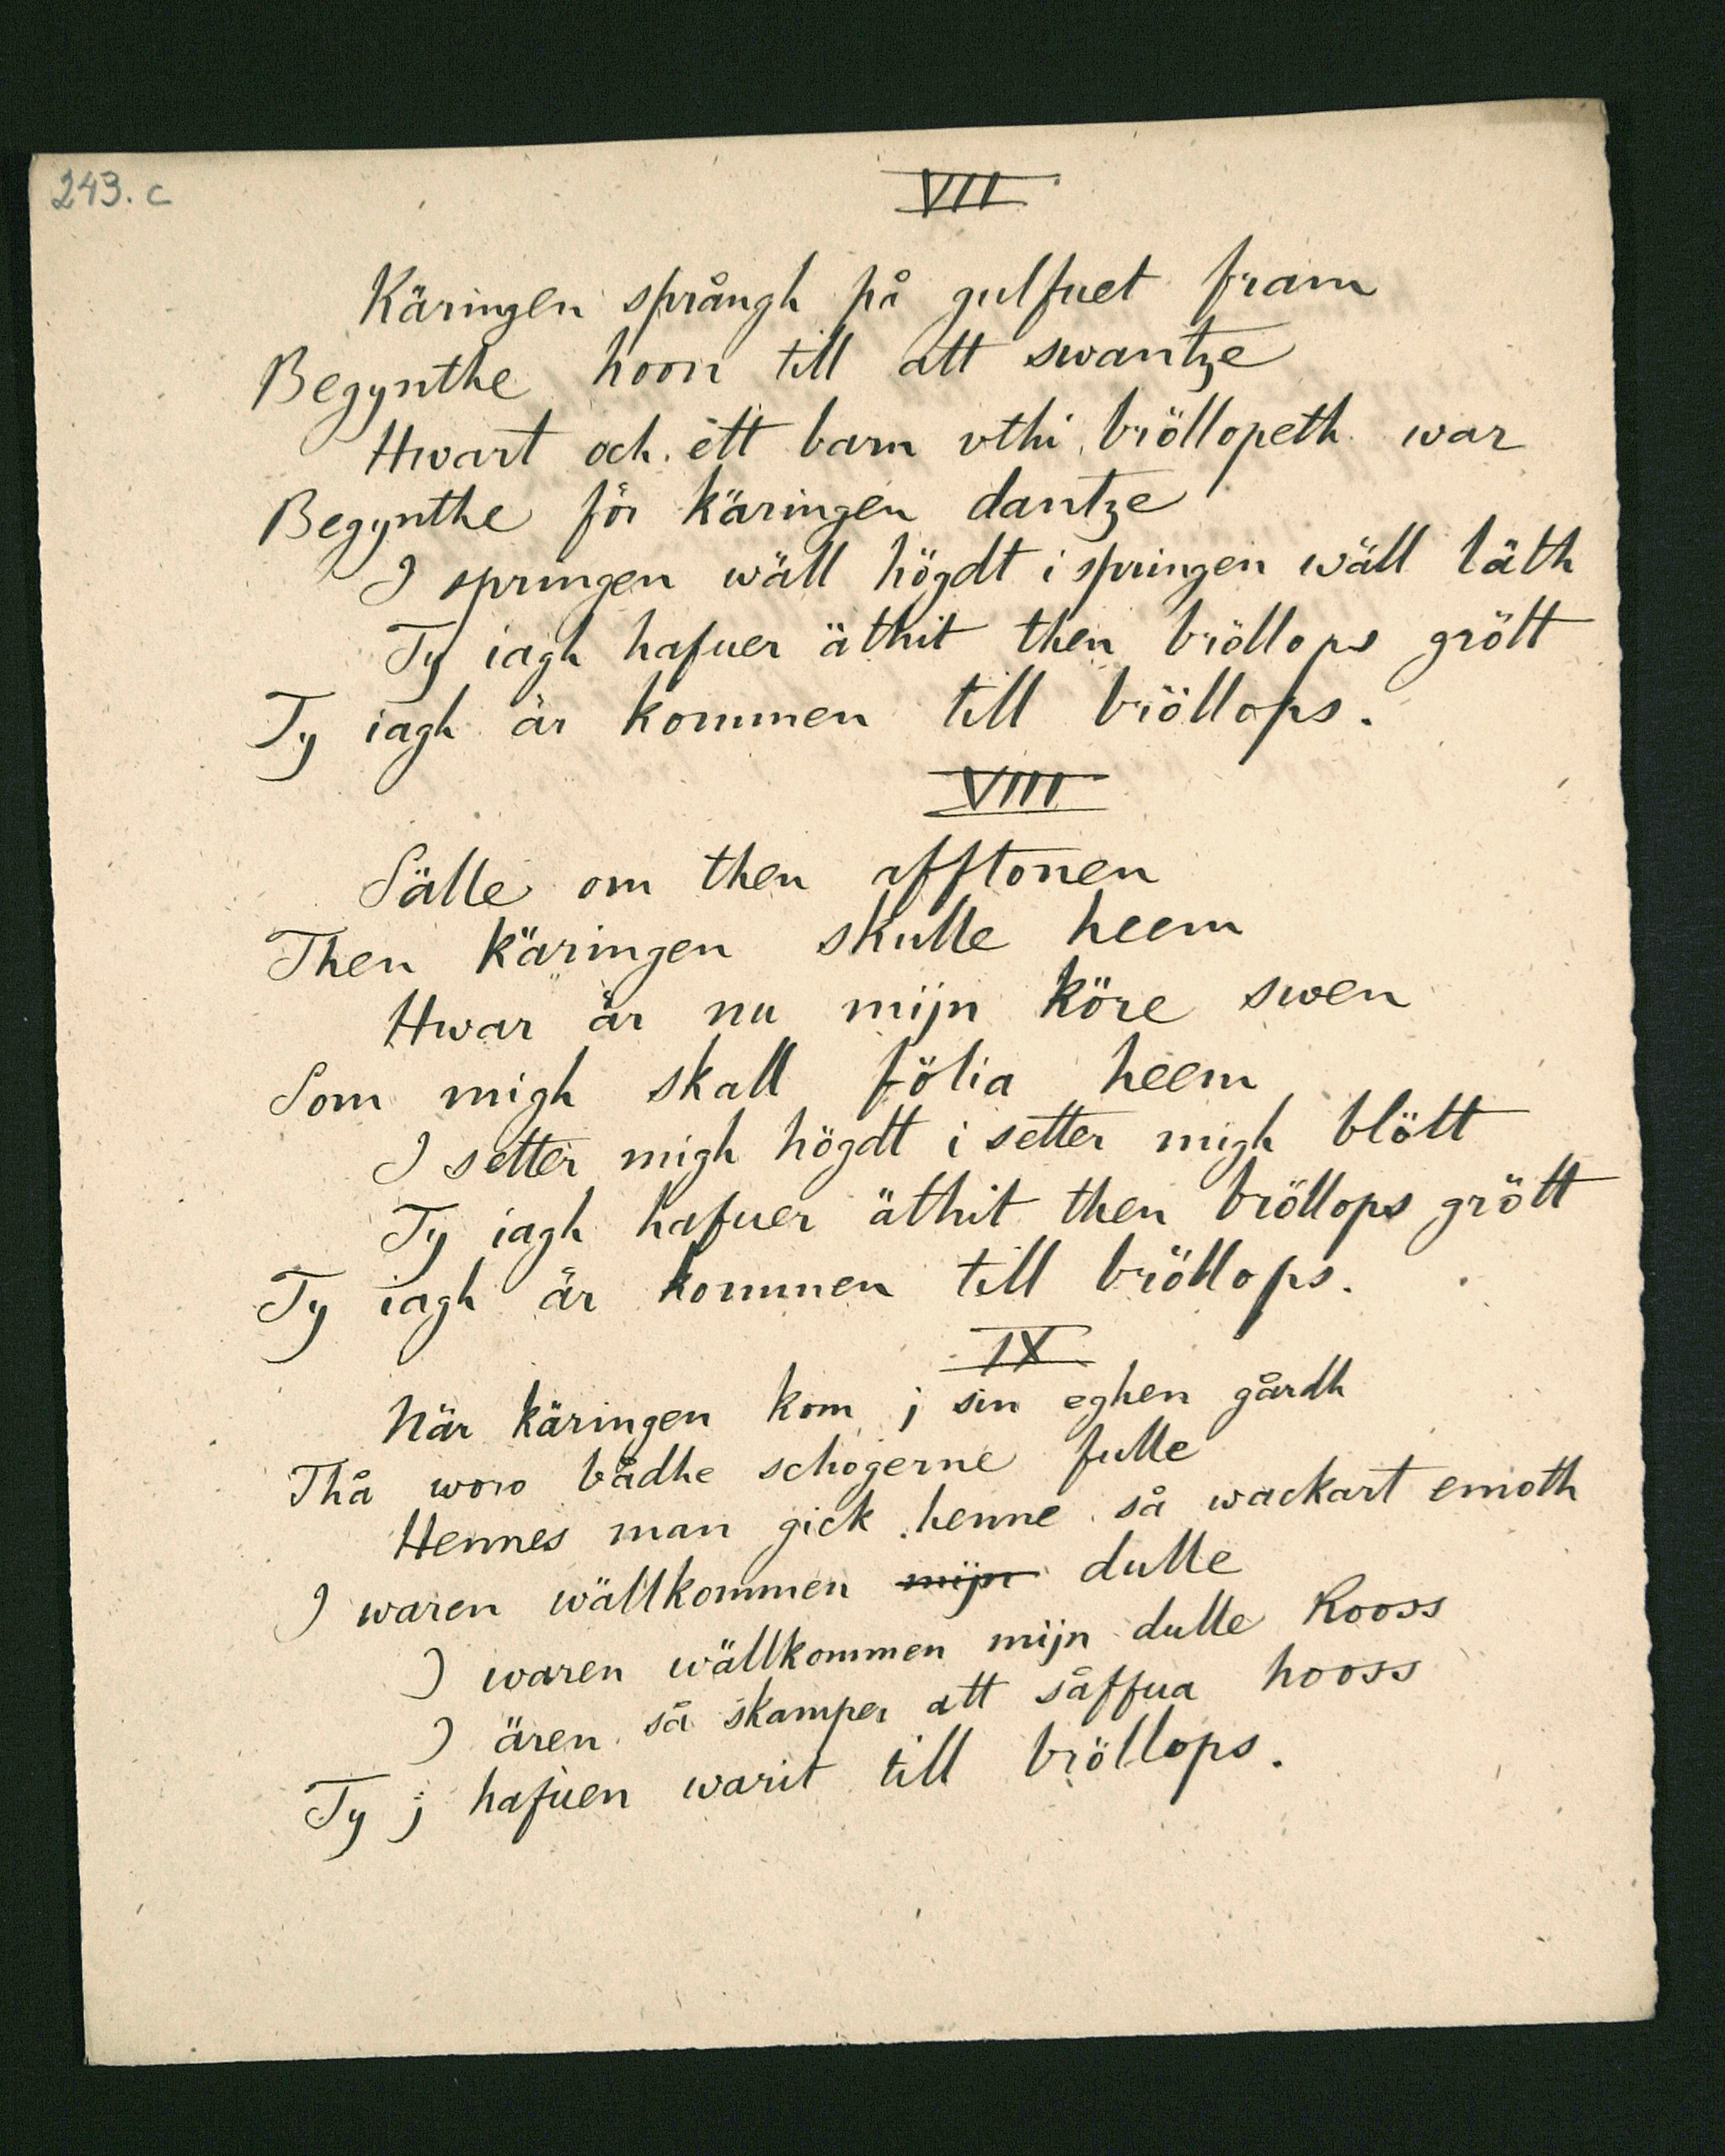 243. c
VII
Käringen språngh på gulfuet fram
Begynthe hoon till att swantze
Hwart och ett barn vthi bröllopeth war
Begynthe för käringen dantze
I springen wäll högdt i springen wäll läth
Ty iagh hafuer äthit then bröllops grött
Ty iagh är kommen till bröllops.
VIII
Sälle om then afftonen
Then käringen skulle heem
Hwar är nu mijn köre swen
Som migh skall fölia heem
I setter migh högdt i setter migh blött
Ty iagh hafuer äthit then bröllops grött
Ty iagh är kommen till bröllops.
IX
När käringen kom j sin eghen gårdh
Thå woro bådhe schogerne fulle
Hennes man gick henne så wackart emoth
I waren wällkommen mijn dulle
I waren wällkommen mijn dulle Kooss
I ären så skamper att såffua hooss
Ty j hafuen warit till bröllops.